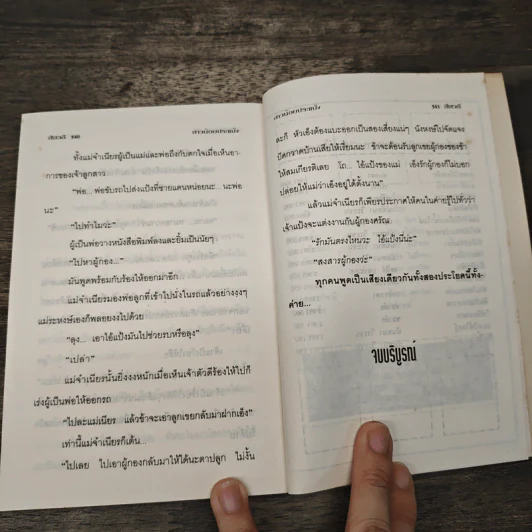 เชิงวลี 540 สาวน้อยประแป้ง
ทั้งแม่จำเนียรผู้เป็นแม่และพ่อถึงกับตกใจเมื่อเห็นอา-
การของเจ้าลูกสาว
“พ่อ... พ่อขับรถไปส่งแป้งที่ชายแดนหน่อยนะ... นะพ่อ
นะ”
“ไปทำไมวะ”
ผู้เป็นพ่อวางหนังสือพิมพ์ลงและยิ้มเป็นนัยๆ
“ไปหาผู้กอง...”
มันพูดพร้อมกับร้องไห้ออกมาอีก
แม่จำเนียรมองพ่อลูกที่เข้าไปนั่งในรถแล้วอย่างงงๆ
แม่ระหงษ์เองก็พลอยงงไปด้วย
“ลุง... เอาไอ้แป้งมันไปช่วยรบหรือลุง”
“เปล่า”
แม่จำเนียรนั้นยิ่งงงหนักเมื่อเห็นเจ้าตัวดีร้องไห้ไปก็
เร่งผู้เป็นพ่อให้ออกรถ
“ไปละแม่เนียร แล้วข้าจะเอาลูกเขยกลับมาฝากเอ็ง”
เท่านี้แม่จำเนียรก็เต้น...
“ไปเลย ไปเอาผู้กองกลับมาให้ได้นะตาปลูก ไม่งั้น
สาวน้อยประแป้ง 541 เชิงวลี
ละก็ หัวเอ็งต้องแบะออกเป็นสองเสี่ยงแน่ๆ นังหงษ์ไปจัดแจง
ปัดกวาดบ้านเสียให้เรียบนะ ข้าจะต้อนรับลูกเขยผู้กองของข้า
ให้สมเกียรติเลย โถ... ไอ้แป้งของแม่ เอ็งรักผู้กองก็ไม่บอก
ปล่อยให้แม่ว่าเอ็งอยู่ได้ตั้งนาน”
แล้วแม่จำเนียรก็เที่ยวประกาศให้คนในค่ายรู้ไปทั่วว่า
เจ้าแป้งจะแต่งงานกับผู้กองศรัณ
“รักมันตรงไหนวะ ไอ้แป้งนี่น่ะ”
“สงสารผู้กองว่ะ”
ทุกคนพูดเป็นเสียงเดียวกันทั้งสองประโยคนี้ทั้ง-
ค่าย...
จบบริบูรณ์